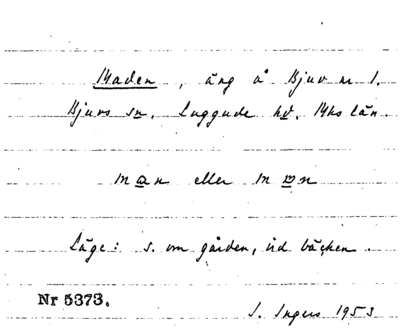 Maden, äng å Bjuv nr 1.
Bjuvs sn. Luggude hd. Mhs län.
man eller mɒn
Läge: s. om gården, vid bäcken.
Nr 5373.
I. Ingers 1953